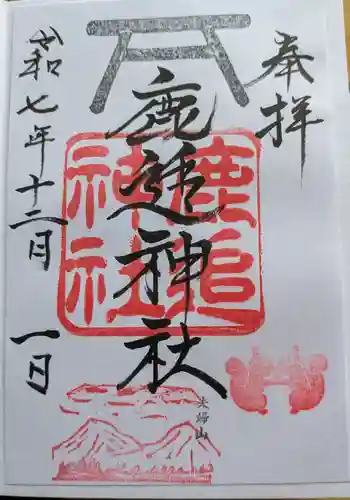 奉拝
鹿追神社
鹿追
神社
令和七年十二月
一日
夫婦山